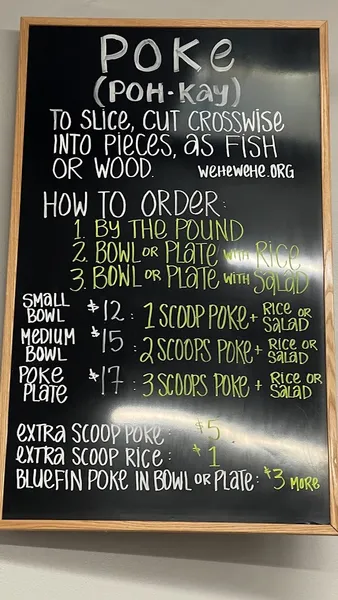 POKE
(POH-KAY)
TO SLICE, CUT CROSSWISE
INTO PIECES, AS FISH
OR WOOD. WEHEWEHE.ORG
HOW TO ORDER:
1. BY THE POUND
2. BOWL OR PLATE WITH RICE
3. BOWL OR PLATE WITH SALAD
SMALL BOWL $12: 1 SCOOP POKE + RICE OR SALAD
MEDIUM BOWL $15: 2 SCOOPS POKE + RICE OR SALAD
POKE PLATE $17: 3 SCOOPS POKE + RICE OR SALAD
EXTRA SCOOP POKE: $5
EXTRA SCOOP RICE: $1
BLUEFIN POKE IN BOWL OR PLATE: $3 MORE